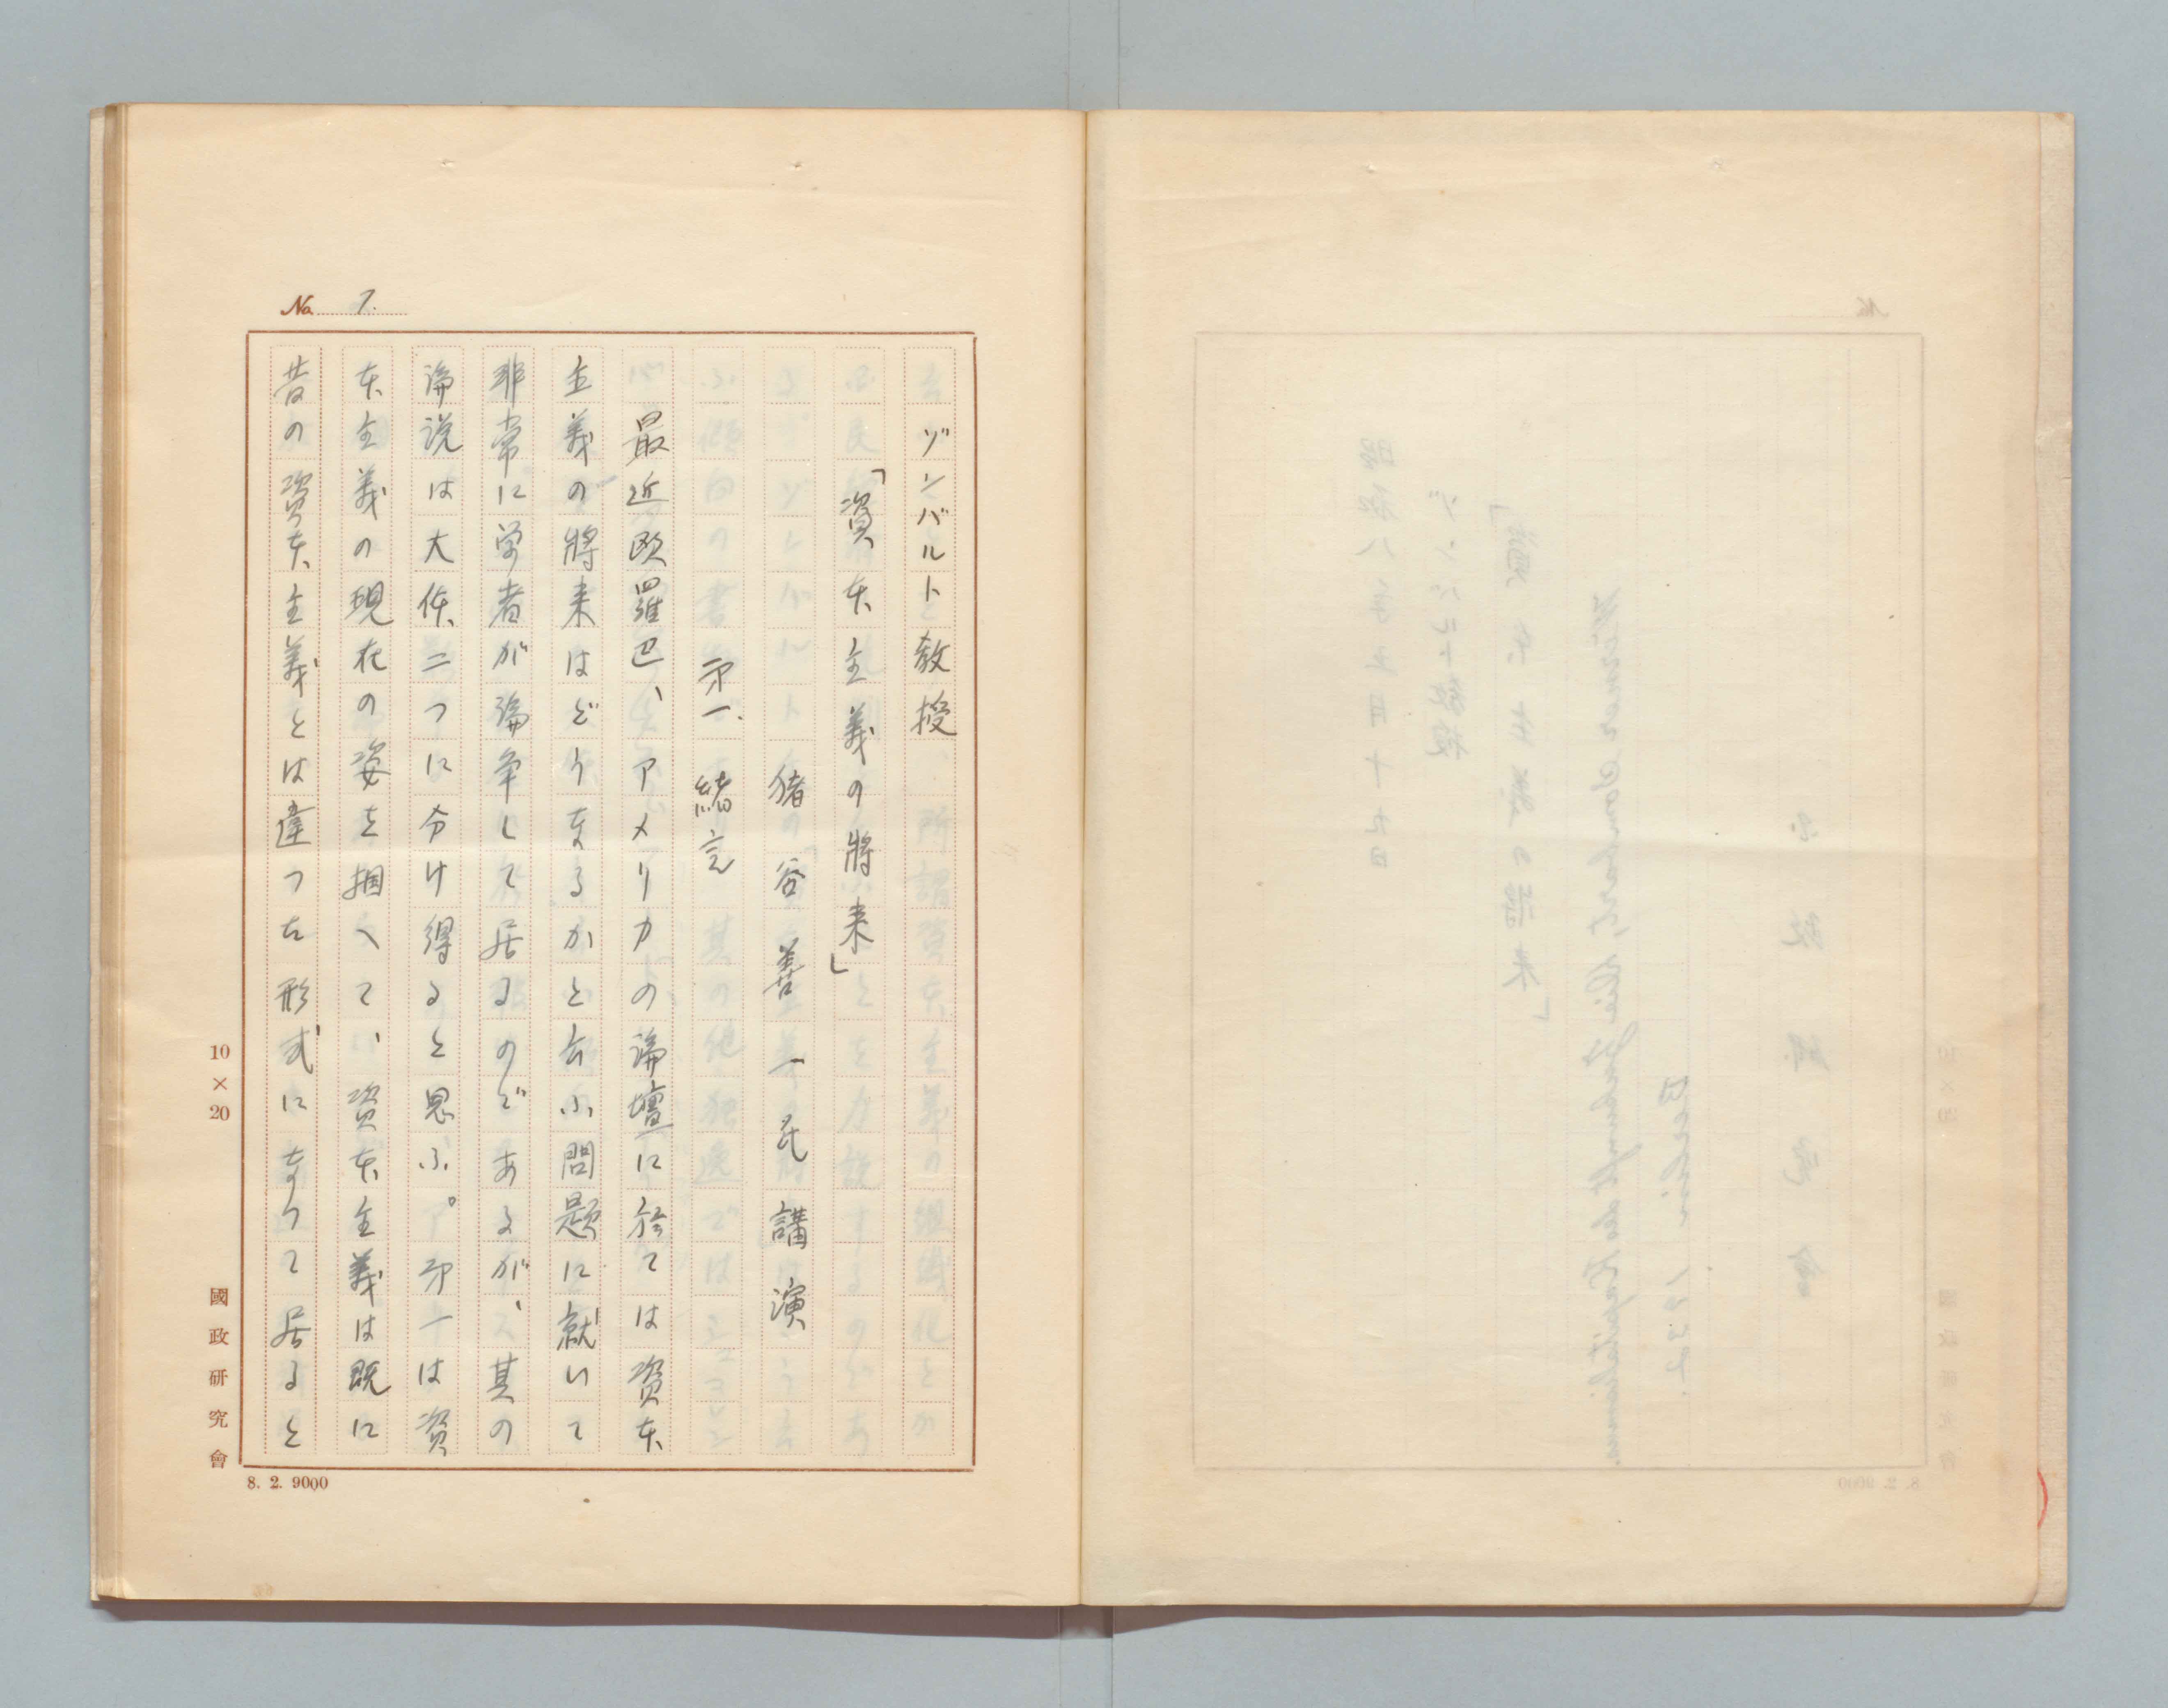 No. 1.
ゾンバルト教授
「資本主義の將来」
猪谷善一氏講演
第一、緒言
最近欧羅巴、アメリカの論壇に於ては資本
主義の將来はどうなるかと云ふ問題に就いて
非常に学者が論争して居るのであるが、其の
論説は大体二つに分け得ると思ふ。第一は資
本主義の現在の姿を掴へて、資本主義は既に
昔の資本主義とは違つた形式になつて居ると
10×20
國政研究會
8. 2. 9000